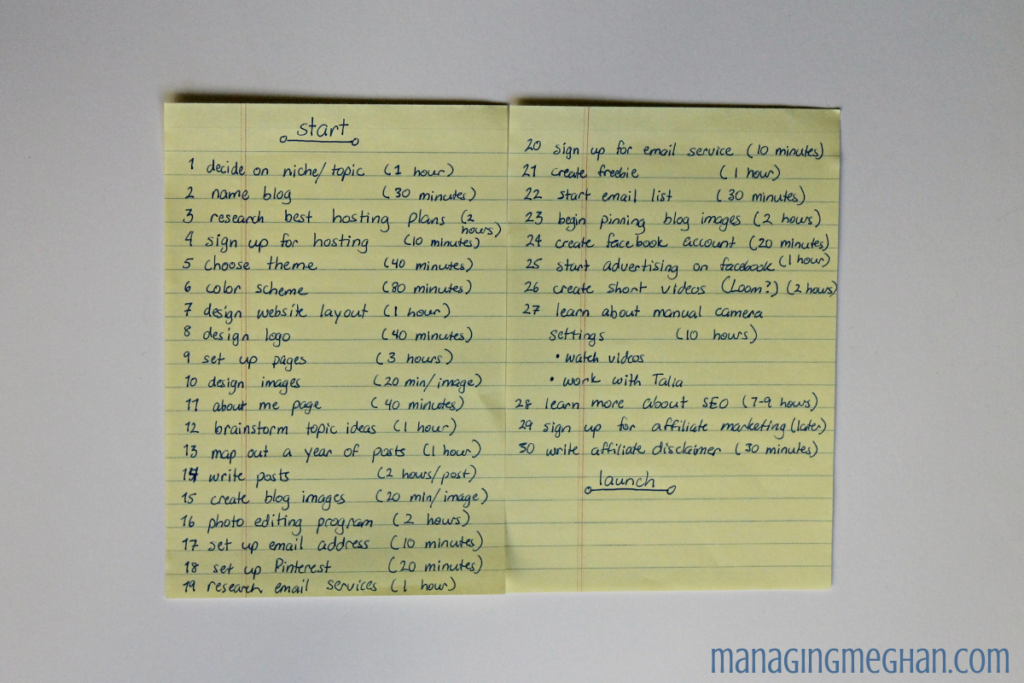 start
1 decide on niche/topic (1 hour)
2 name blog (30 minutes)
3 research best hosting plans (2 hours)
4 sign up for hosting (10 minutes)
5 choose theme (40 minutes)
6 color scheme (80 minutes)
7 design website layout (1 hour)
8 design logo (40 minutes)
9 set up pages (3 hours)
10 design images (20 min/image)
11 about me page (40 minutes)
12 brainstorm topic ideas (1 hour)
13 map out a year of posts (1 hour)
14 write posts (2 hours/post)
15 create blog images (20 min/image)
16 photo editing program (2 hours)
17 set up email address (10 minutes)
18 set up Pinterest (20 minutes)
19 research email services (1 hour)
20 sign up for email service (10 minutes)
21 create freebie (1 hour)
22 start email list (30 minutes)
23 begin pinning blog images (2 hours)
24 create facebook account (20 minutes)
25 start advertising on facebook (1 hour)
26 create short videos (Loom?) (2 hours)
27 learn about manual camera
settings (10 hours)
• watch videos
• work with Talia
28 learn more about SEO (7-9 hours)
29 sign up for affiliate marketing (later)
30 write affiliate disclaimer (30 minutes)
launch
managingmeghan.com